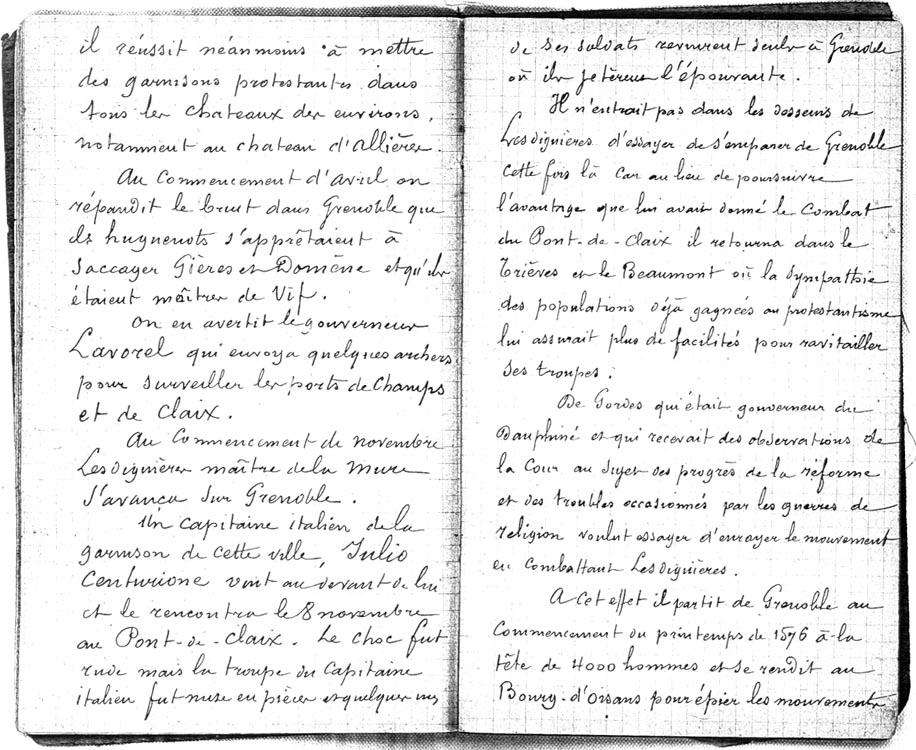 il réussit néanmoins à mettre
des garnisons protestantes dans
tous les chateaux des environs,
notamment au chateau d'Allières.
Au commencement d'avril on
répandit le bruit dans Grenoble que
les huguenots s'apprêtaient à
saccager Gières et Domène et qu'ils
étaient maîtres de Vif.
On en avertit le gouverneur
Lavorel qui envoya quelques archers
pour surveiller les ports de Champs
et de Claix.
Au commencement de novembre
Lesdiguières maître de la Mure
s'avança sur Grenoble.
Un capitaine italien de la
garnison de cette ville, Julio
Centurione vint au devant de lui
et le rencontra le 8 novembre
au Pont-de-Claix. Le choc fut
rude mais la troupe du capitaine
italien fut mise en pièces et quelques uns
de ses soldats revinrent seuls à Grenoble
où ils jetèrent l'épouvante.
Il n'entrait pas dans les desseins de
Lesdiguières d'essayer de s'emparer de Grenoble
cette fois là car au lieu de poursuivre
l'avantage que lui avait donné le combat
du Pont-de-Claix il retourna dans le
Trièves et le Beaumont où la sympathie
des populations déjà gagnées au protestantisme
lui assurait plus de facilités pour ravitailler
ses troupes.
De Gordes qui était gouverneur du
Dauphiné et qui recevait des observations de
la Cour au sujet des progrès de la réforme
et des troubles occasionnés par les guerres de
religion voulut essayer d'enrayer le mouvement
en combattant Lesdiguières.
A cet effet il partit de Grenoble au
commencement du printemps de 1576 à la
tête de 4000 hommes et se rendit au
Bourg-d'Oisans pour épier les mouvements